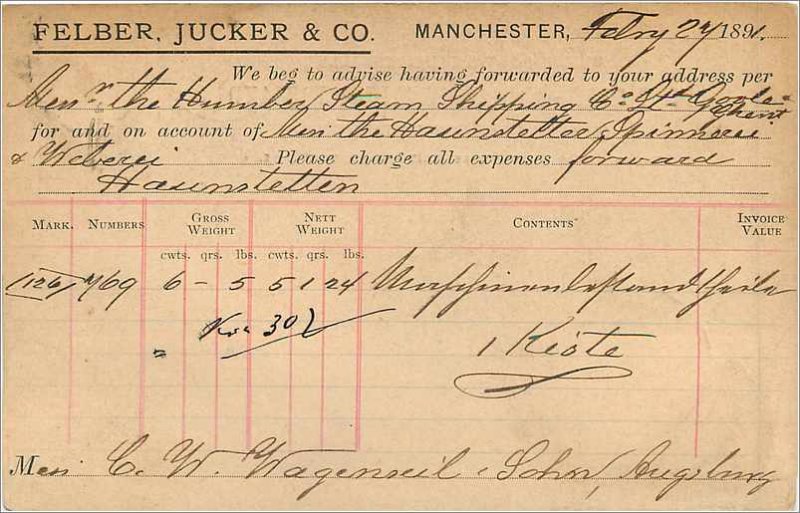 FELBER, JUCKER & CO. MANCHESTER, Febry 27 1891.
We beg to advise having forwarded to your address per
Messrs the Humber Steam Shipping Co Ltd Goole-Ghent
for and on account of Mess the Haunstetter Spinnerei
& Weberei Please charge all expenses forward
Haunstetten
MARK. NUMBERS GROSS WEIGHT NETT WEIGHT CONTENTS INVOICE VALUE
cwts. qrs. lbs. cwts. qrs. lbs.
(126) 769 6 - 5 5 1 24 Maschinenbestandtheile
302 1 Kiste
Mess C. W. Wagenseil Augsburg